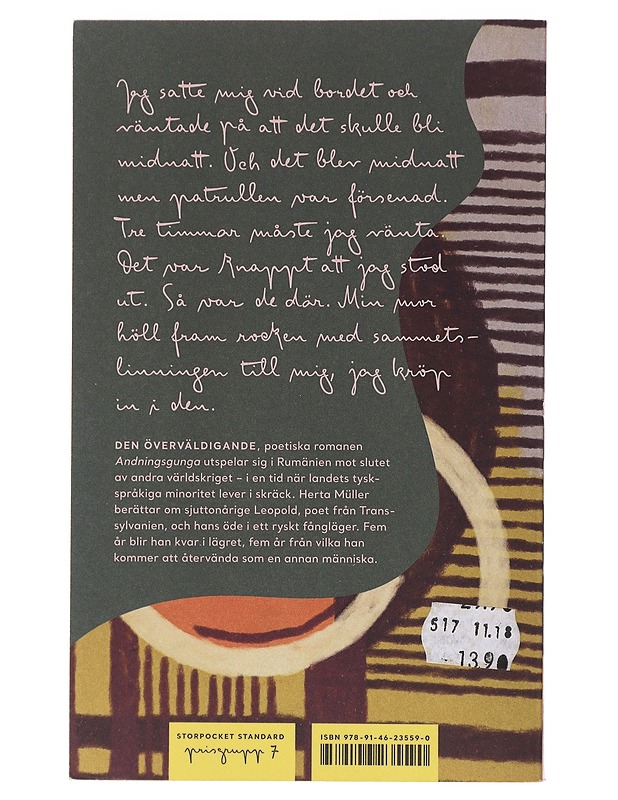 Jag satte mig vid bordet och
väntade på att det skulle bli
midnatt. Och det blev midnatt
men patrullen var försenad.
Tre timmar måste jag vänta.
Det var knappt att jag stod
ut. Så var de där. Min mor
höll fram rocken med sammets-
linningen till mig, jag kröp
in i den.
DEN ÖVERVÄLDIGANDE, poetiska romanen
Andningsgunga utspelar sig i Rumänien mot slutet
av andra världskriget – i en tid när landets tysk-
språkiga minoritet lever i skräck. Herta Müller
berättar om sjuttonårige Leopold, poet från Trans-
sylvanien, och hans öde i ett ryskt fångläger. Fem
år blir han kvar i lägret, fem år från vilka han
kommer att återvända som en annan människa.
517 11.18
1390
STORPOCKET STANDARD
prisgrupp 7
ISBN 978-91-46-23559-0